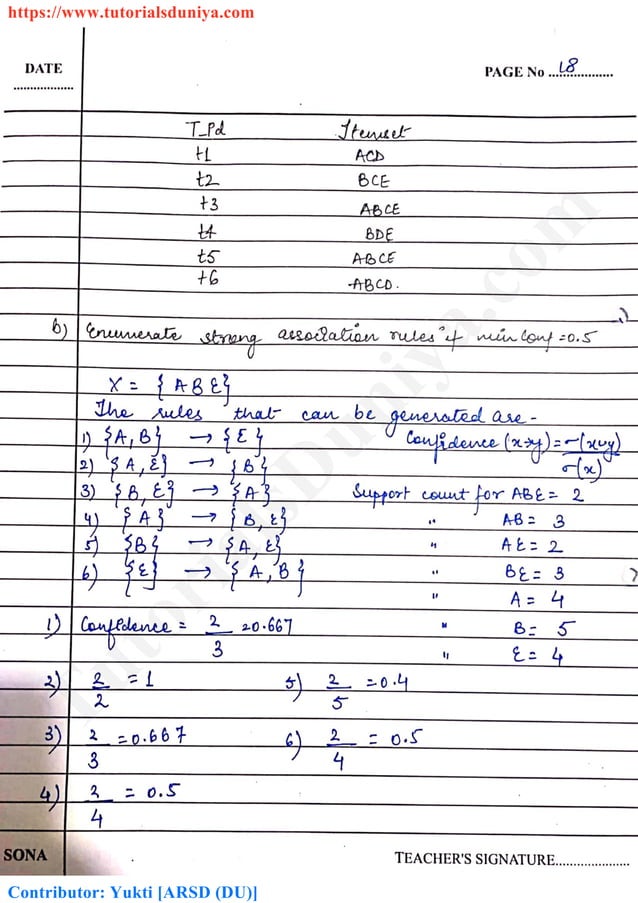 https://www.tutorialsduniya.com
DATE
PAGE No 18
T_Pd Itemset
t1 ACD
t2 BCE
t3 ABCE
t4 BDE
t5 ABCE
t6 ABCD.
b) Enumerate strong association rules if min Conf = 0.5
X = { A B E}
The rules that can be generated are -
1) {A, B} → {E} Confidence (x→y) = σ(x∪y)/σ(x)
2) {A, E} → {B}
3) {B, E} → {A} Support count for ABE = 2
4) {A} → {B, E} " AB = 3
5) {B} → {A, E} " AE = 2
6) {E} → {A, B} " BE = 3
" A = 4
1) Confidence = 2/3 = 0.667 " B = 5
" E = 4
2) 2/2 = 1 5) 2/5 = 0.4
3) 2/3 = 0.667 6) 2/4 = 0.5
4) 2/4 = 0.5
SONA TEACHER'S SIGNATURE
Contributor: Yukti [ARSD (DU)]
TutorialsDuniya.com